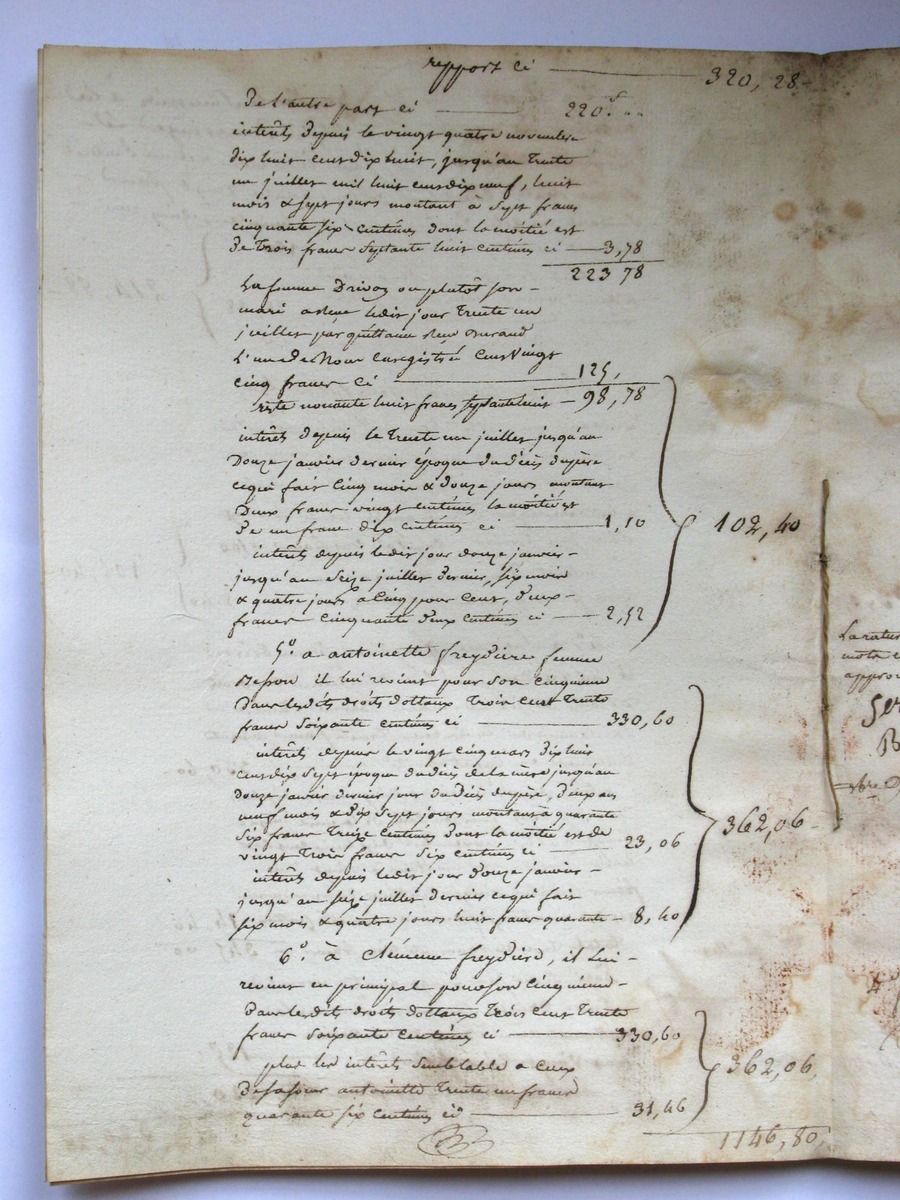 rapport ci 320, 28
De l'autre part ci 220.f
interêts depuis le vingt quatre novembre
dix huit cent dix huit, jusqu'au trente
un juillet mil huit cent dix neuf, huit
mois & sept jours montant à sept francs
cinquante six centimes dont la moitié est
de trois francs septante huit centimes ci 3,78
223 78
La femme Drivon ou plutôt son
mari a reçu ledit jour trente un
juillet par quittance reçu Durand
L'un de Nous enregistrée cent vingt
cinq francs ci 125,
reste nonante huit francs septante huit 98, 78
interêts depuis le trente un juillet jusqu'au
Douze janvier dernier époque du décès du père
ce qui fait cinq mois & douze jours montant
Deux francs vingt centimes la moitié est
de un franc dix centimes ci 1,10
interêts depuis ledit jour douze janvier
jusqu'au seize juillet dernier, six mois
& quatre jours a cinq pour cent, deux
francs cinquante deux centimes ci 2,52
102, 40
5.° a antoinette freydière femme
Besson il lui revient pour son cinquieme
Dans lesdits droits dottaux trois cent trente
francs soixante centimes ci 330,60
interêts depuis le vingt cinq mars dix huit
cent dix sept époque du décès de la mère jusqu'au
douze janvier dernier jour du décès du père, deux ans
neuf mois & dix sept jours montant à quarante
six francs treize centimes dont la moitié est de
vingt trois francs six centimes ci 23,06
interêts depuis ledit jour douze janvier
jusqu'au seize juillet dernier ce qui fait
six mois & quatre jours huit francs quarante 8,40
362,06
6.° à Clémence freydière, il lui
revient en principal pour son cinquieme
Dans lesdits droits dottaux trois cent trente
francs soixante centimes ci 330,60
plus les interêts semblable a ceux
de sa sœur antoinette trente un francs
quarante six centimes ci 31,46
362,06
1146,80
La ratur
mots
approu